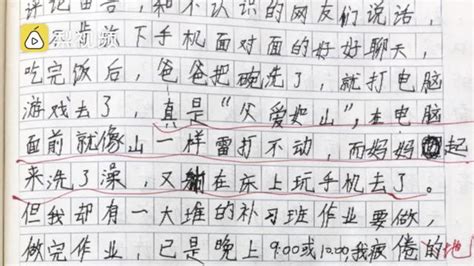 评论留言,和不认识的网友们说话,
梨视频
放下手机面对面的好好聊天,
吃完饭后,爸爸把碗洗了,就打电脑
游戏去了,真是“父爱如山”,在电脑
面前就像山一样雷打不动,而妈妈起
来洗了澡,又在床上玩手机去了。
但我却有一大堆的补习班作业要做,
做完作业,已是晚上9:00或10:00我疲倦的地